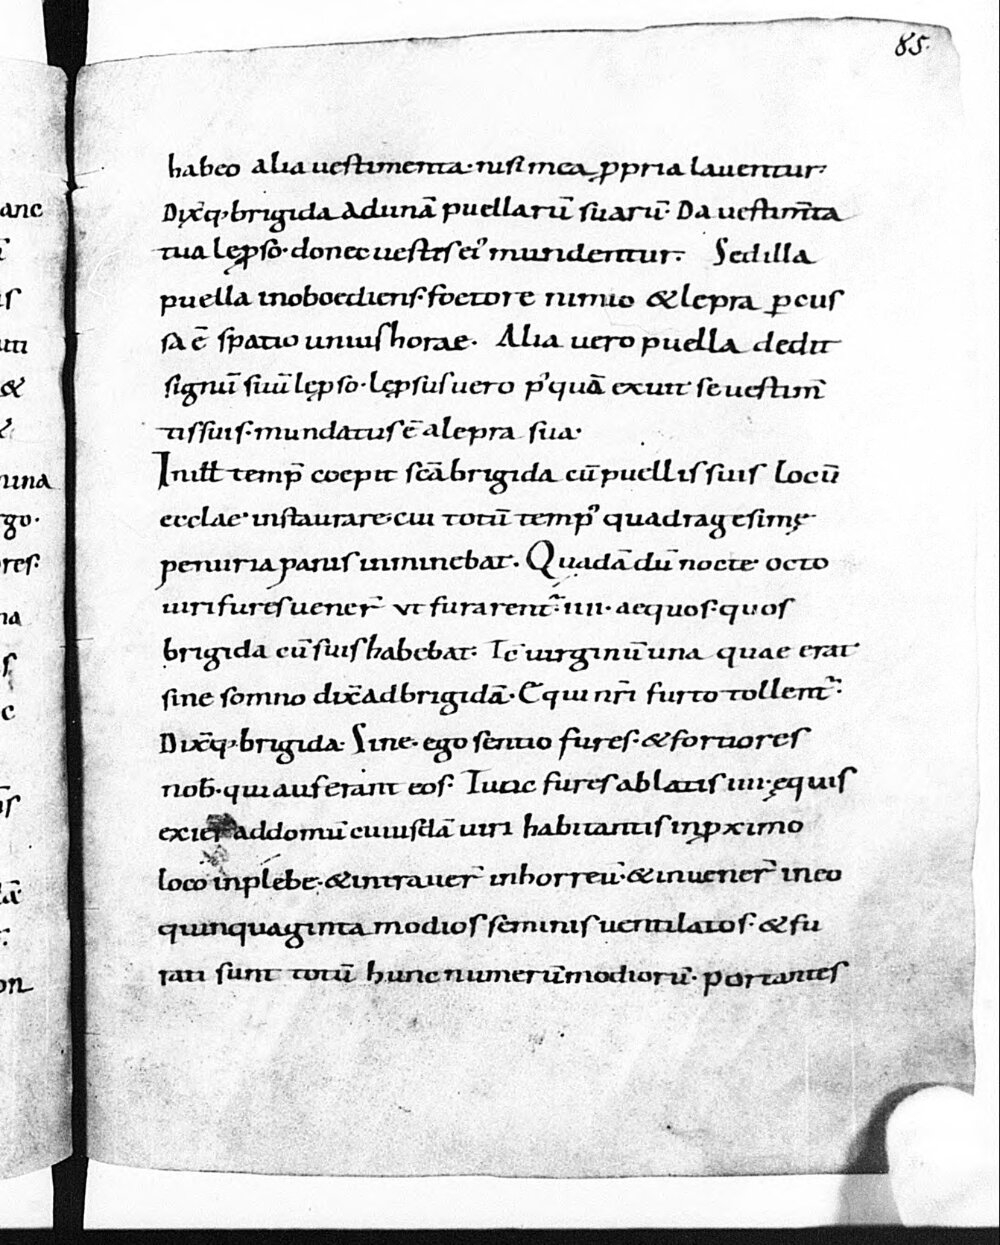 85.
habeo alia uestimenta· nisi mea ꝓpria lauentur·
Dix̄q· brigida ad unā puellarū suarū· Da uestim̄ta
tua lep̱so· donec uestis ei᾽ mundentur· Sed illa
puella inoboediens· foetore nimio & lepra ꝑcus
sa ē spatio unius horae· Alia uero puella dedit
signū suū lep̱so· lep̱sus uero p᾽quā exuit se uestim̄
tis suis· mundatus ē a lepra sua·
In ill̄ temp̄ coepit sc̄a brigida cū puellis suis locū
ecclae· instaurare· cui totū temp᾽ quadragesimę
penuria panis inminebat· Quadā dū nocte octo
uiri fures uener̄ ut furarent᷑· iiii· aequos· quos
brigida cū suis habebat· Tc̄ uirginū una quae erat
sine somno dix̄ ad brigidā· Equi nr̄i furto tollent᷑·
Dix̄q· brigida· Sine· ego sentio fures· & fortiores
nob̄· qui auferant eos· Tunc fures ablatis iiii· ęquis
exier̄ ad domū cuiusdā uiri habitantis in ꝓximo
loco in plebe· & intrauer̄ in horreū· & inuener̄ in eo
quinquaginta modios seminis uentilatos· & fu
rati sunt totū hunc numerū modiorū· portantes
anc
us
&
nina
go·
res·
na
c
on